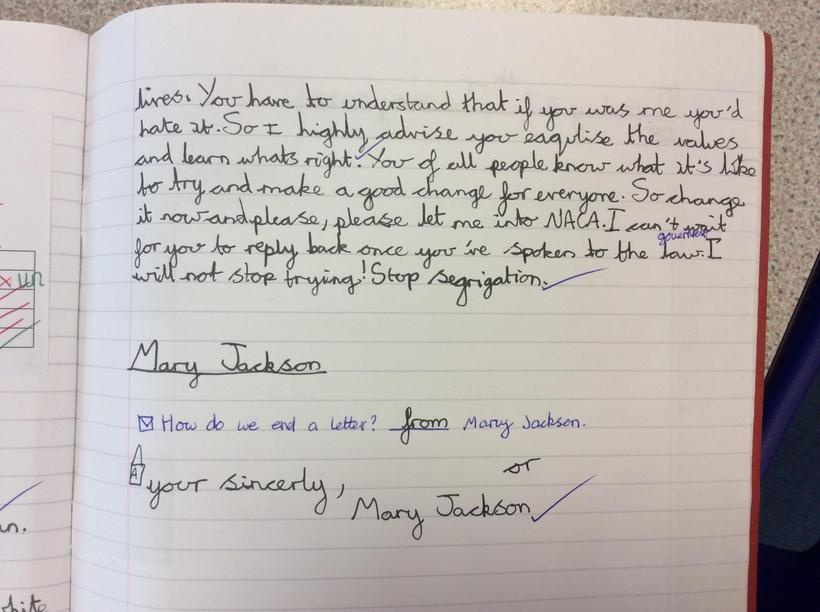 lives. You have to understand that if you was me you'd
hate it. So I highly advise you eaqulise the values
and learn whats right. You of all people know what it's like
to try and make a good change for everyone. So change
it now and please, please let me into NACA. I can't wait
government
for you to reply back once you've spoken to the law. I
will not stop trying! Stop segrigation.
Mary Jackson
How do we end a letter? from Mary Jackson.
A
or
your sincerly,
Mary Jackson
un.